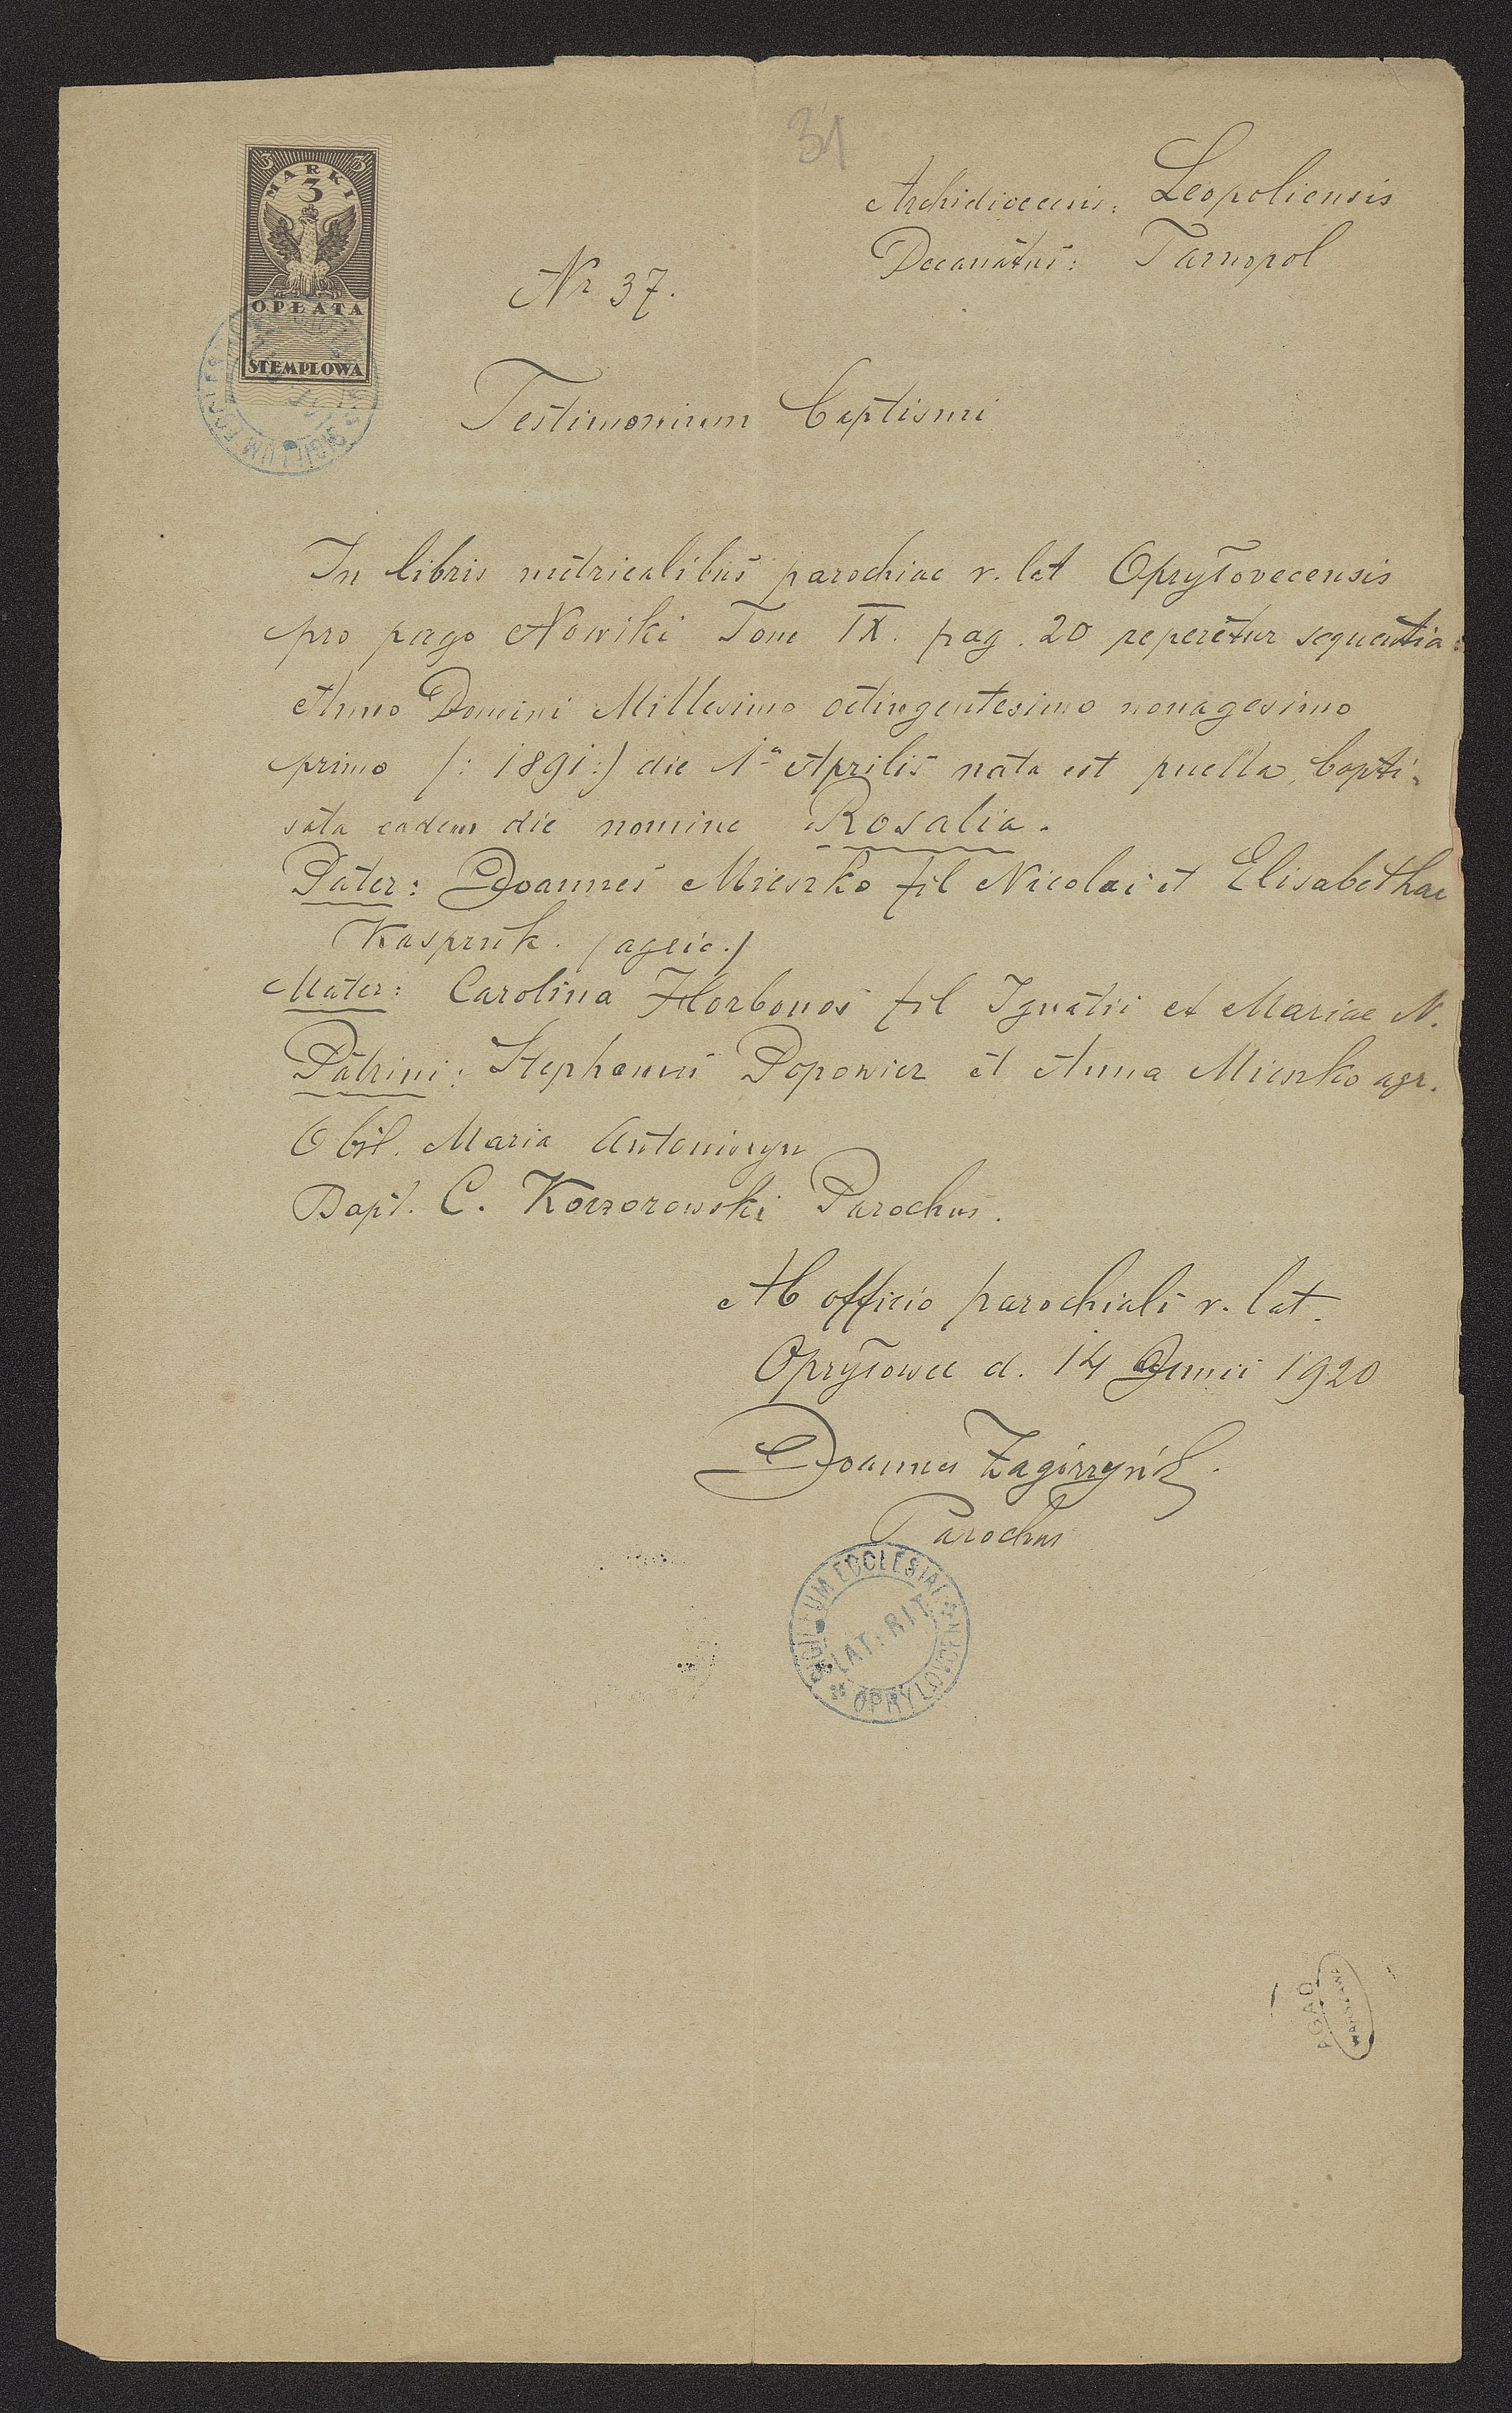 31
3 3
MARKI
3
OPŁATA
STEMPLOWA
Archidioecesis: Leopoliensis
Decanatus: Tarnopol
Nr 37.
Testimonium baptismi
In libris metricalibus parochiae r. lat Opryłovecensis
pro pago Nowiki Tom IX. pag. 20 reperetur sequentia:
Anno Domini Millesimo octingentesimo nonagesimo
primo /: 1891 :/ die 1a Aprilis nata est puella, bapti-
sata eadem die nomine Rosalia.
Pater: Joannes Mieszko fil Nicolai et Elisabethae
Kaspruk. /agric./
Mater: Carolina Horbonos fil Ignatii et Mariae N.
Patrini: Stephanus Popowicz et Anna Mieszko agr.
Obst. Maria Antoniszyn
Bapt. C. Korzorowski Parochus.
Ab officio parochiali r. lat.
Opryłowce d. 14 Junii 1920
Joannes Zagórzyński
Parochus
SIGILLUM ECCLESIAE
LAT: RIT
OPRYLOVECEN
AGAD
WARSZAWA